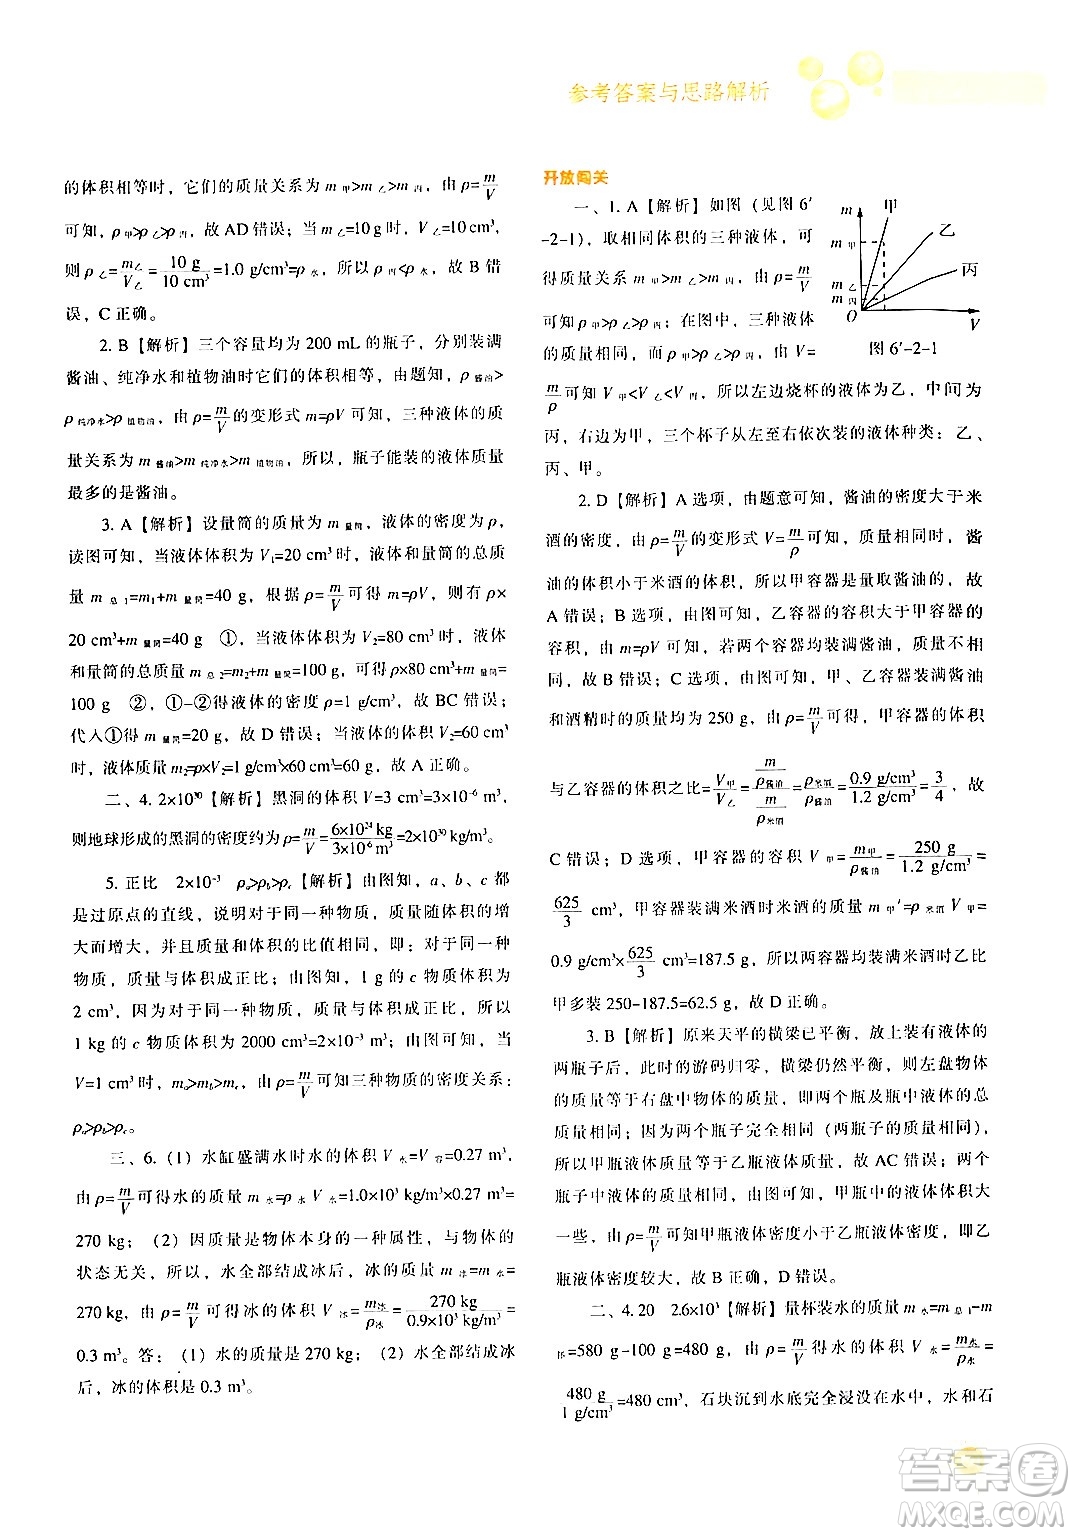 参考答案与思路解析
的体积相等时，它们的质量关系为 m甲>m乙>m丙，由 ρ=m/V
可知，ρ甲>ρ乙>ρ丙，故 AD 错误；当 m乙=10 g 时，V乙=10 cm³，
则 ρ乙=m乙/V乙=10 g/10 cm³=1.0 g/cm³=ρ水，所以 ρ丙<ρ水，故 B 错
误，C 正确。
2. B【解析】三个容量均为 200 mL 的瓶子，分别装满
酱油、纯净水和植物油时它们的体积相等，由题知，ρ酱油>
ρ纯净水>ρ植物油，由 ρ=m/V 的变形式 m=ρV 可知，三种液体的质
量关系为 m酱油>m纯净水>m植物油，所以，瓶子能装的液体质量
最多的是酱油。
3. A【解析】设量筒的质量为 m量筒，液体的密度为 ρ，
读图可知，当液体体积为 V₁=20 cm³ 时，液体和量筒的总质
量 m总1=m₁+m量筒=40 g，根据 ρ=m/V 可得，有 ρ×
20 cm³+m量筒=40 g　①，当液体体积为 V₂=80 cm³ 时，液体
和量筒的总质量 m总2=m₂+m量筒=100 g，可得 ρ×80 cm³+m量筒=
100 g　②，①-②得液体的密度 ρ=1 g/cm³，故 BC 错误；
代入①得 m量筒=20 g，故 D 错误；当液体的体积 V₂=60 cm³
时，液体质量 m₂=ρ×V₂=1 g/cm³×60 cm³=60 g，故 A 正确。
二、4. 2×10³⁰【解析】黑洞的体积 V=3 cm³=3×10⁻⁶ m³，
则地球形成的黑洞的密度约为 ρ=m/V=6×10²⁴ kg/3×10⁻⁶ m³=2×10³⁰ kg/m³。
5. 正比　2×10⁻³　ρa>ρb>ρc【解析】由图知，a、b、c 都
是过原点的直线，说明对于同一种物质，质量随体积的增
大而增大，并且质量和体积的比值相同，即：对于同一种
物质，质量与体积成正比；由图知，1 g 的 c 物质体积为
2 cm³，因为对于同一种物质，质量与体积成正比，所以
1 kg 的 c 物质体积为 2000 cm³=2×10⁻³ m³；由图可知，当
V=1 cm³ 时，ma>mb>mc，由 ρ=m/V 可知三种物质的密度关系：
ρa>ρb>ρc。
三、6.（1）水缸盛满水时水的体积 V水=V容=0.27 m³，
由 ρ=m/V 可得水的质量 m水=ρ水V水=1.0×10³ kg/m³×0.27 m³=
270 kg；（2）因质量是物体本身的一种属性，与物体的
状态无关，所以，水全部结成冰后，冰的质量 m冰=m水=
270 kg，由 ρ=m/V 可得冰的体积 V冰=m冰/ρ冰=270 kg/0.9×10³ kg/m³=
0.3 m³。答：（1）水的质量是 270 kg；（2）水全部结成冰
后，冰的体积是 0.3 m³。
开放闯关
一、1. A【解析】如图（见图 6′
-2-1），取相同体积的三种液体，可
得质量关系 m甲>m乙>m丙，由 ρ=m/V
可知 ρ甲>ρ乙>ρ丙；在图中，三种液体
的质量相同，而 ρ甲>ρ乙>ρ丙，由 V=
m/ρ 可知 V甲<V乙<V丙，所以左边烧杯的液体为乙，中间为
丙，右边为甲，三个杯子从左至右依次装的液体种类：乙、
丙、甲。
m
甲
乙
丙
m甲
m乙
m丙
O
V
图 6′-2-1
2. D【解析】A 选项，由题意可知，酱油的密度大于米
酒的密度，由 ρ=m/V 的变形式 V=m/ρ 可知，质量相同时，酱
油的体积小于米酒的体积，所以甲容器是量取酱油的，故
A 错误；B 选项，由图可知，乙容器的容积大于甲容器的
容积，由 m=ρV 可知，若两个容器均装满酱油，质量不相
同，故 B 错误；C 选项，由图可知，甲、乙容器装满酱油
和酒精时的质量均为 250 g，由 ρ=m/V 可得，甲容器的体积
与乙容器的体积之比=V甲/V乙=(m/ρ酱油)/(m/ρ米酒)=ρ米酒/ρ酱油=0.9 g/cm³/1.2 g/cm³=3/4，故
C 错误；D 选项，甲容器的容积 V甲=m甲/ρ酱油=250 g/1.2 g/cm³=
625/3 cm³，甲容器装满米酒时米酒的质量 m甲′=ρ米酒V甲=
0.9 g/cm³×625/3 cm³=187.5 g，所以两容器装满米酒时乙比
甲多装 250-187.5=62.5 g，故 D 正确。
3. B【解析】原来天平的横梁已平衡，放上装有液体的
两瓶子后，天平的游码归零，横梁仍然平衡，左盘物体
的质量等于右盘中物体的质量，即两个瓶及瓶中液体的总
质量相同；因为两个瓶子完全相同（两瓶子的质量相同），
所以甲瓶液体质量等于乙瓶液体质量，故 AC 错误；两个
瓶子中液体的质量相同，由图可知，甲瓶中的液体体积大
一些，由 ρ=m/V 可知甲瓶液体密度小于乙瓶液体密度，即乙
瓶液体密度较大，故 B 正确，D 错误。
二、4. 20　2.6×10³【解析】量杯装水的质量 m水=m总1-m
杯=580 g-100 g=480 g，由 ρ=m/V 可得水的体积 V水=m水/ρ水=
480 g/1 g/cm³=480 cm³，石块沉到水底完全浸没在水中，水和石
答案圈
MXQE.COM